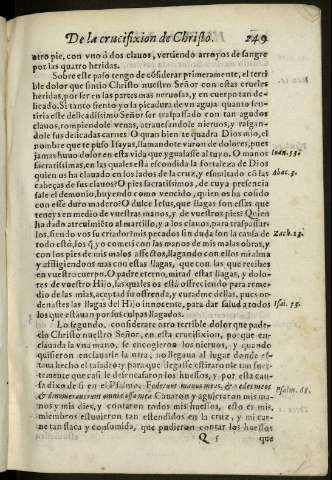 De la crucifixion de Christo. 249
otro pie, con vno ó dos clauos, vertiendo arroyos de sangre
por las quatro heridas.
Sobre este paso tengo de cósiderar primeramente, el terri
ble dolor que sintio Christo nuestro Señor con estas crueles
heridas, por ser en las partes mas neruosas, y en cuerpo tan de-
licado. Si tanto siento yo la picadura de vn aguja quanto sen-
tiria este delicadissimo Señor ser traspassado con tan agudos
clauos, rompiendole venas, atrauesandole neruos, y rasgan-
dole sus delicadas carnes. O quan bien te quadra Dios mio, el
nombre que te puso Isayas, llamandote varon de dolores, pues
jamas huuo dolor en esta vida que ygualasse al tuyo. O manos
sacratissimas, en las quales esta escondida la fortaleza de Dios
quien os ha clauado en los lados de la cruz, y esmaltado có las
cabeças de sus clauos? O pies sacratissimos, de cuya presencia
sale el demonio, huyendo como vencido, quien os ha cosido
con esse duro madero? O dulce Iesus, que llagas son essas que
teneys en medio de vuestras manos, y de vuestros pies? Quien
ha dado atreuimiéto al martillo, y a los clauos, para traspassar-
los, siendo vos su criador? mis pecados sin duda son la causa de
todo esto, los q̃ yo cometi con las manos de mis malas obras, y
con los pies de mis malos affectos, llagando con ellos mi alma
y afligiendoos mas con estas llagas, que con las que recibes
en vuestro cuerpo. O padre eterno, mirad estas llagas, y dolo-
res de vuestro Hijo, las quales os està offreciendo para reme-
dio de las mias, aceptad su ofrenda, y curadme dellas, pues or-
denastes las llagas del Hijo innocente, para dar salud a todos
los que estauan por sus culpas llagados.
Lo segundo, considerare otro terrible dolor que pade-
cio Christo nuestro Señor, en esta crucifixion, porque en-
clauada la vna mano, se encogieron los neruios, y quando
quisieron enclauarle la otra, no llegaua al lugar donde es-
taua hecho el taladro: y para que llegasse estiraronle tan fuer-
temente que casi le desencasaron los huessos, y por esta cau-
sa dixo de si en el Psalmo, Foderunt manus meas, & pedes meos
& dinumerauerunt omnia ossa mea. Cauaron y agujeraron mis ma-
nos y mis pies, y contaron todos mis huessos, esto es, mis
miembros estuuieron tan estendidos en la cruz, y mi car-
ne tan flaca y consumida, que pudieron contar los huessos
Q 5 que
Isai. 53.
Abac. 3.
Zach. 13.
Isai. 53.